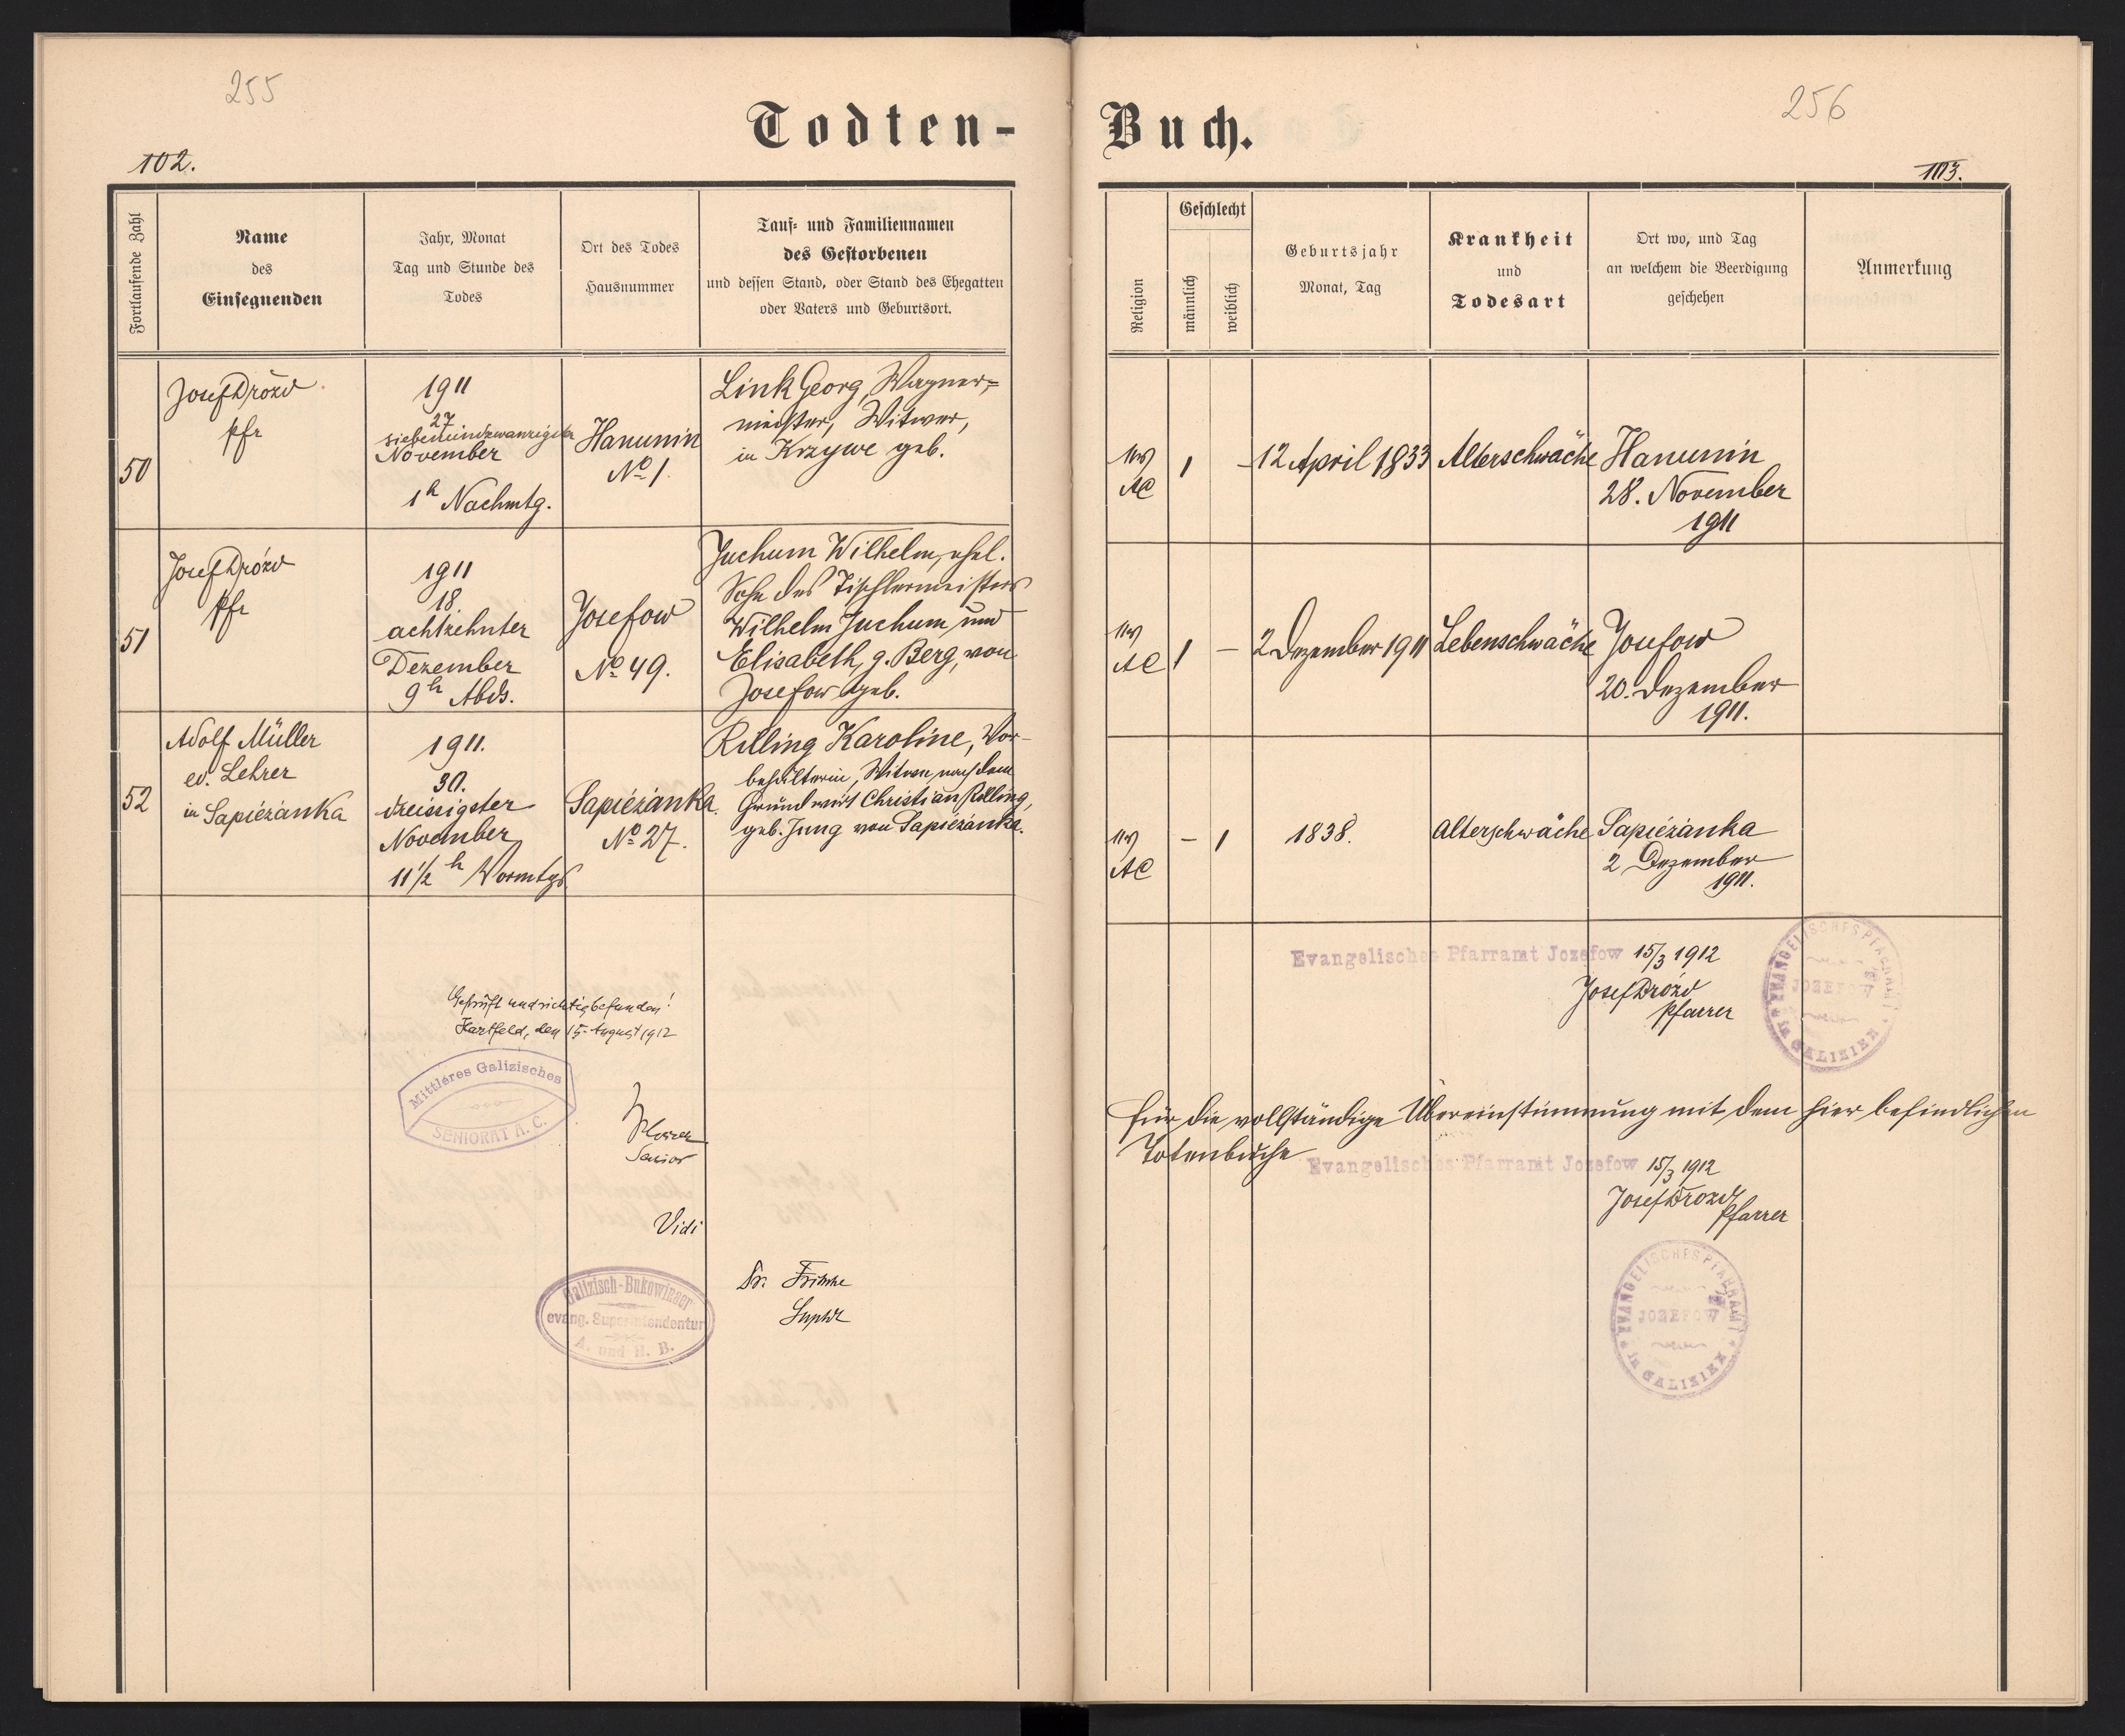 255
256
Todten-
Buch.
102.
103.
Fortlaufende Zahl
Name
des
Einsegnenden
Jahr, Monat
Tag und Stunde des
Todes
Ort des Todes
Hausnummer
Tauf- und Familiennamen
des Gestorbenen
und dessen Stand, oder Stand des Ehegatten
oder Vaters und Geburtsort.
Religion
Geschlecht
männlich
weiblich
Geburtsjahr
Monat, Tag
Krankheit
und
Todesart
Ort wo, und Tag
an welchem die Beerdigung
geschehen
Anmerkung
50
Josef Drózd
pfr
1911
27
siebenundzwanzigster
November
1h Nachmtg.
Hanunin
No 1.
Link Georg, Wagner=
meister, Witwer,
in Krzywe geb.
ev
AC
1
-
12 April 1833
Alterschwäche
Hanunin
28. November
1911
51
Josef Drózd
pfr
1911
18.
achtzehnter
Dezember
9h Abds.
Josefow
No 49.
Juchum Wilhelm, ehel.
Sohn des Tischlermeisters
Wilhelm Juchum und
Elisabeth, g. Berg, von
Josefow geb.
ev
AC
1
-
2 Dezember 1911
Lebenschwäche
Josefow
20. Dezember
1911.
52
Adolf Müller
ev. Lehrer
in Sapieżanka
1911.
30.
dreissigster
November
11 1/2 h Vormtgs
Sapieżanka.
No 27.
Rilling Karoline, Vor-
behälterin, Witwe nach dem
Grundwirt Christian Rilling,
geb. Jung von Sapieżanka.
ev
AC
-
1
1838.
Alterschwäche
Sapieżanka
2 Dezember
1911.
Evangelisches Pfarramt Jozefow 15/3 1912
Josef Drózd
Pfarrer
EVANGELISCHES PFARRAMT
JOZEFOW
in GALIZIEN
Geprüft und richtig befunden!
Hartfeld, den 15. August 1912
Mittleres Galizisches
SENIORAT A. C.
Senior
Vidi
Galizisch-Bukowinaer
evang. Superintendentur
A. und H. B.
Dr. Fritsche
Suptdt
für die vollständige Übereinstimmung mit dem hier befindlichen
Totenbuche
Evangelisches Pfarramt Jozefow 15/3 1912
Josef Drozd
Pfarrer
EVANGELISCHES PFARRAMT
JOZEFOW
in GALIZIEN